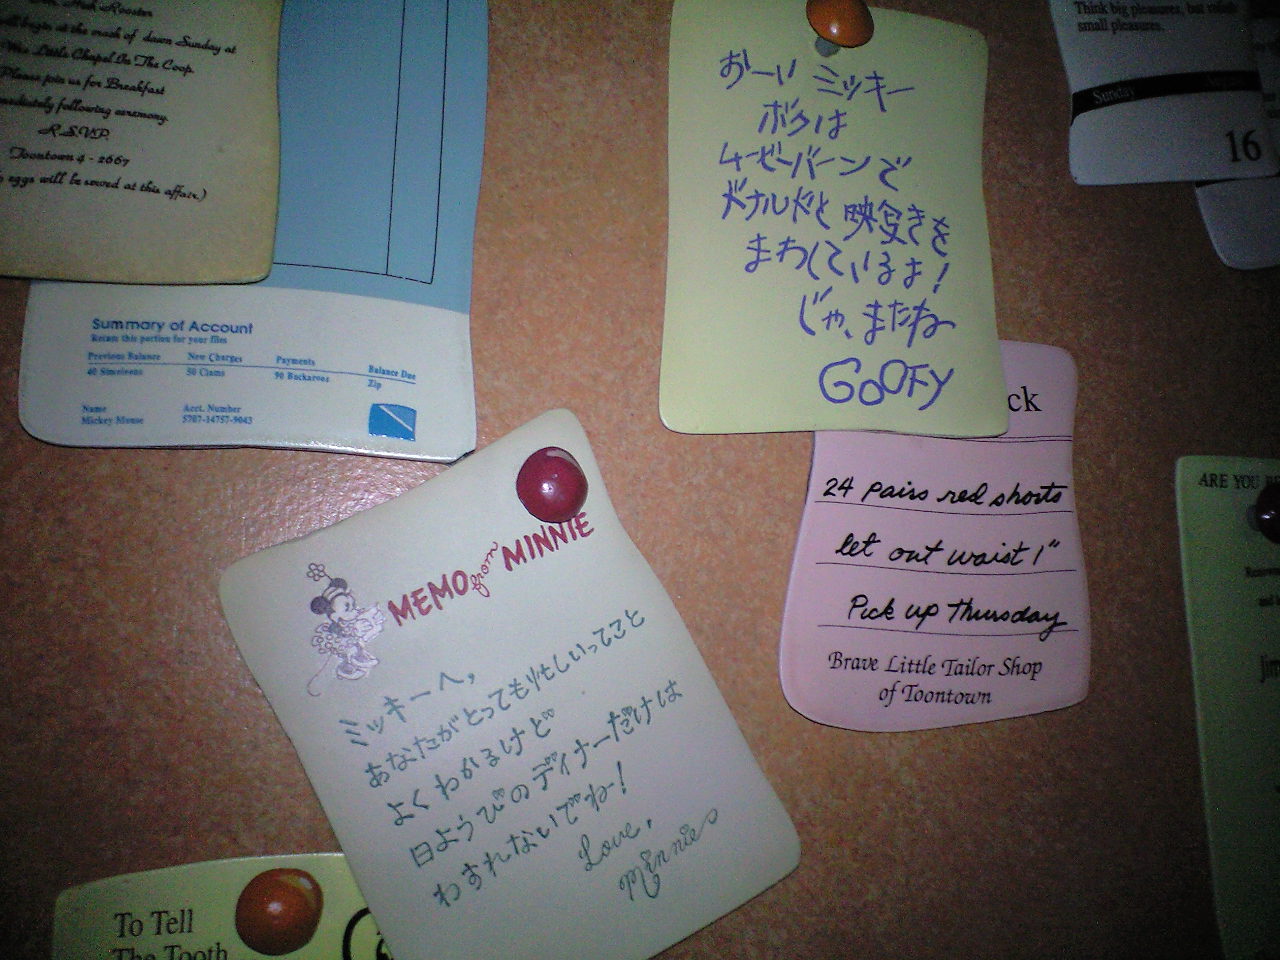 Rooster
begin at the crack of dawn Sunday at
Wee Little Chapel In The Coop.
Please join us for Breakfast
immediately following ceremony.
R.S.V.P.
Toontown 4 - 2667
eggs will be served at this affair.)
Summary of Account
Retain this portion for your files
Previous Balance New Charges Payments Balance Due
40 Simoleons 50 Clams 90 Buckaroos Zip
Name Acct. Number
Mickey Mouse 5707-14757-9043
おーい ミッキー
ボクは
ムービーバーンで
ドナルドと 映写きを
まわしているよ!
じゃ、またね
GOOFY
Think big pleasures, but
small pleasures.
Sunday
16
ck
24 pairs red shorts
let out waist 1"
Pick up Thursday
Brave Little Tailor Shop
of Toontown
MEMO from MINNIE
ミッキーへ,
あなたがとっても忙しいってこと
よくわかるけど
日ようびのディナーだけは
わすれないでネー!
Love,
Minnie
ARE YOU
To Tell
The Tooth